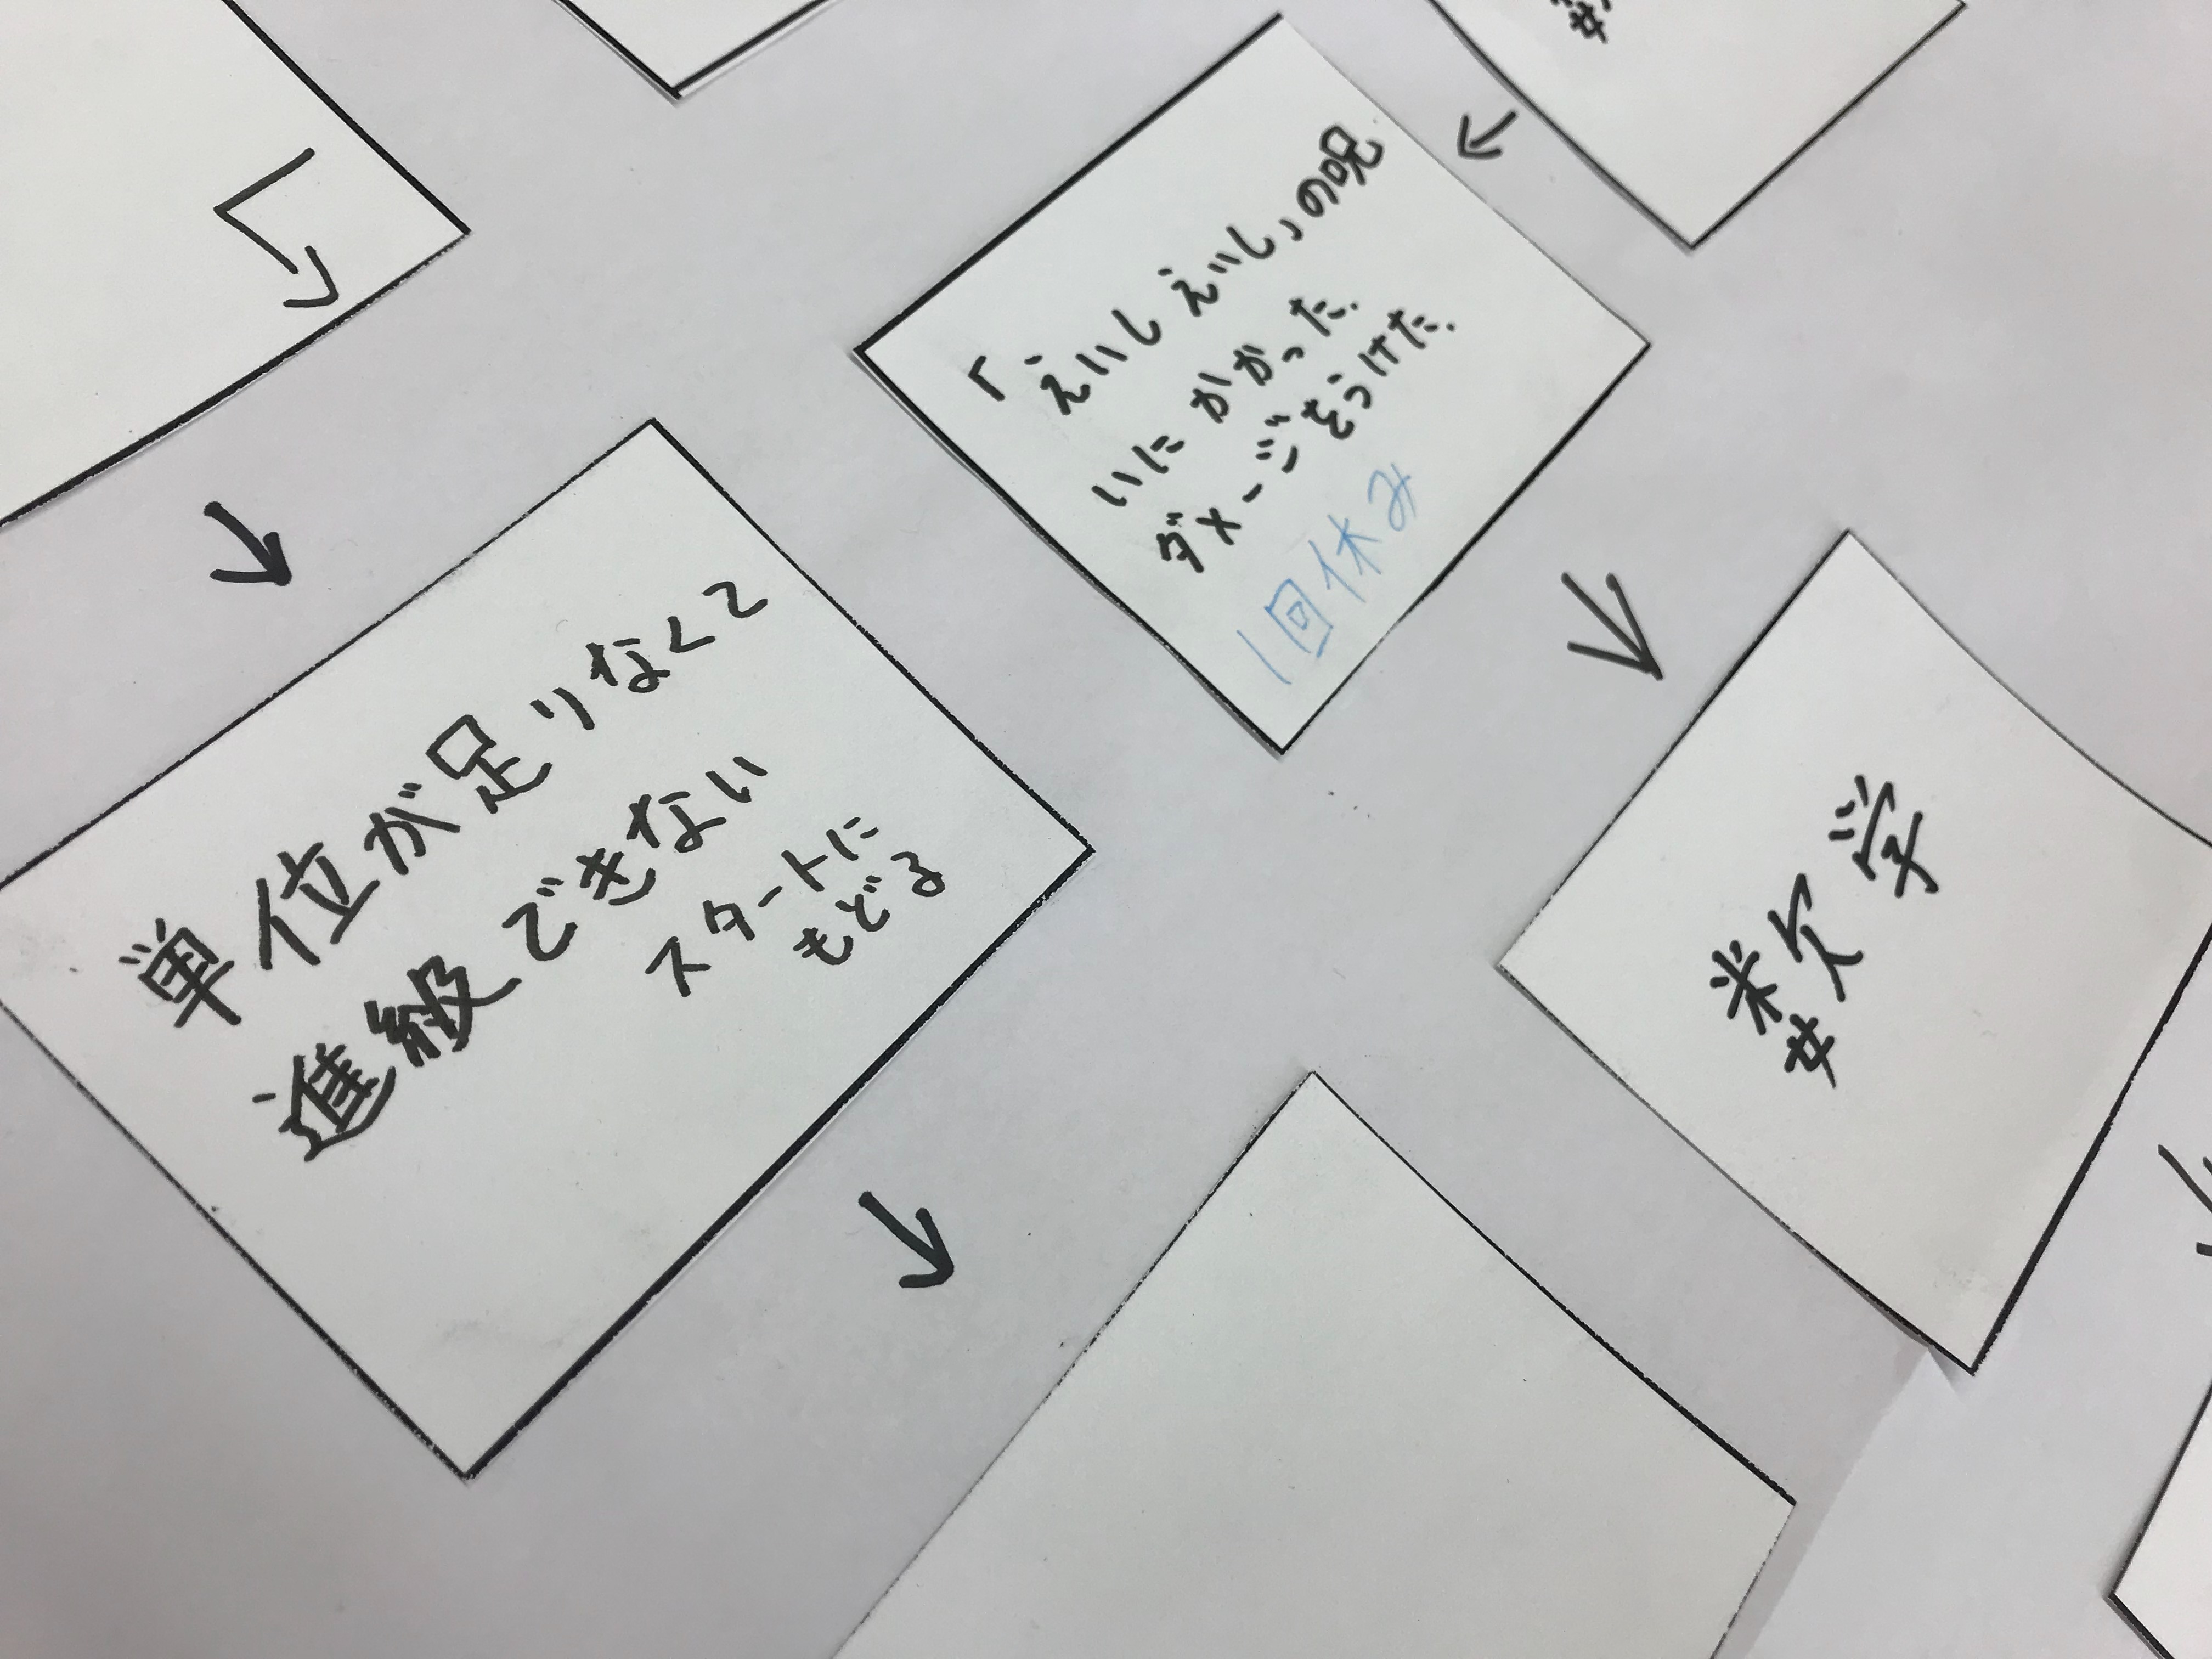 「えいしえいし」の呪
いにかかった.
ダメージをうけた.
1回休み
単位が足りなくて
進級できない
スタートに
もどる
数学